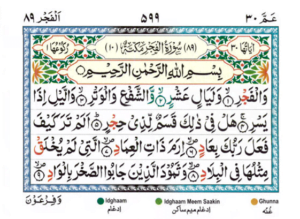 اَلْفَجْر ٨٩ ٥٩٩ عَمَّ ٣٠
اٰيَاتُهَا ٣٠ (٨٩) سُوْرَةُ الْفَجْرِ مَكِّيَّةٌ (١٠) رُكُوْعُهَا ١
بِسْمِ اللّٰهِ الرَّحْمٰنِ الرَّحِيْمِ
وَالْفَجْرِ ۙ۝١ وَلَيَالٍ عَشْرٍ ۙ۝٢ وَّالشَّفْعِ وَالْوَتْرِ ۙ۝٣ وَالَّيْلِ اِذَا
يَسْرِ ۚ۝٤ هَلْ فِيْ ذٰلِكَ قَسَمٌ لِّذِيْ حِجْرٍ ؕ۝٥ اَلَمْ تَرَ كَيْفَ
فَعَلَ رَبُّكَ بِعَادٍ ۪ۙ۝٦ اِرَمَ ذَاتِ الْعِمَادِ ۪ۙ۝٧ الَّتِيْ لَمْ يُخْلَقْ
مِثْلُهَا فِي الْبِلَادِ ۪ۙ۝٨ وَثَمُوْدَ الَّذِيْنَ جَابُوا الصَّخْرَ بِالْوَادِ ۪ۙ۝٩
وَفِرْعَوْنَ
Idghaam Idghaam Meem Saakin Ghunna
ادغام ادغام میم ساکن غنّہ